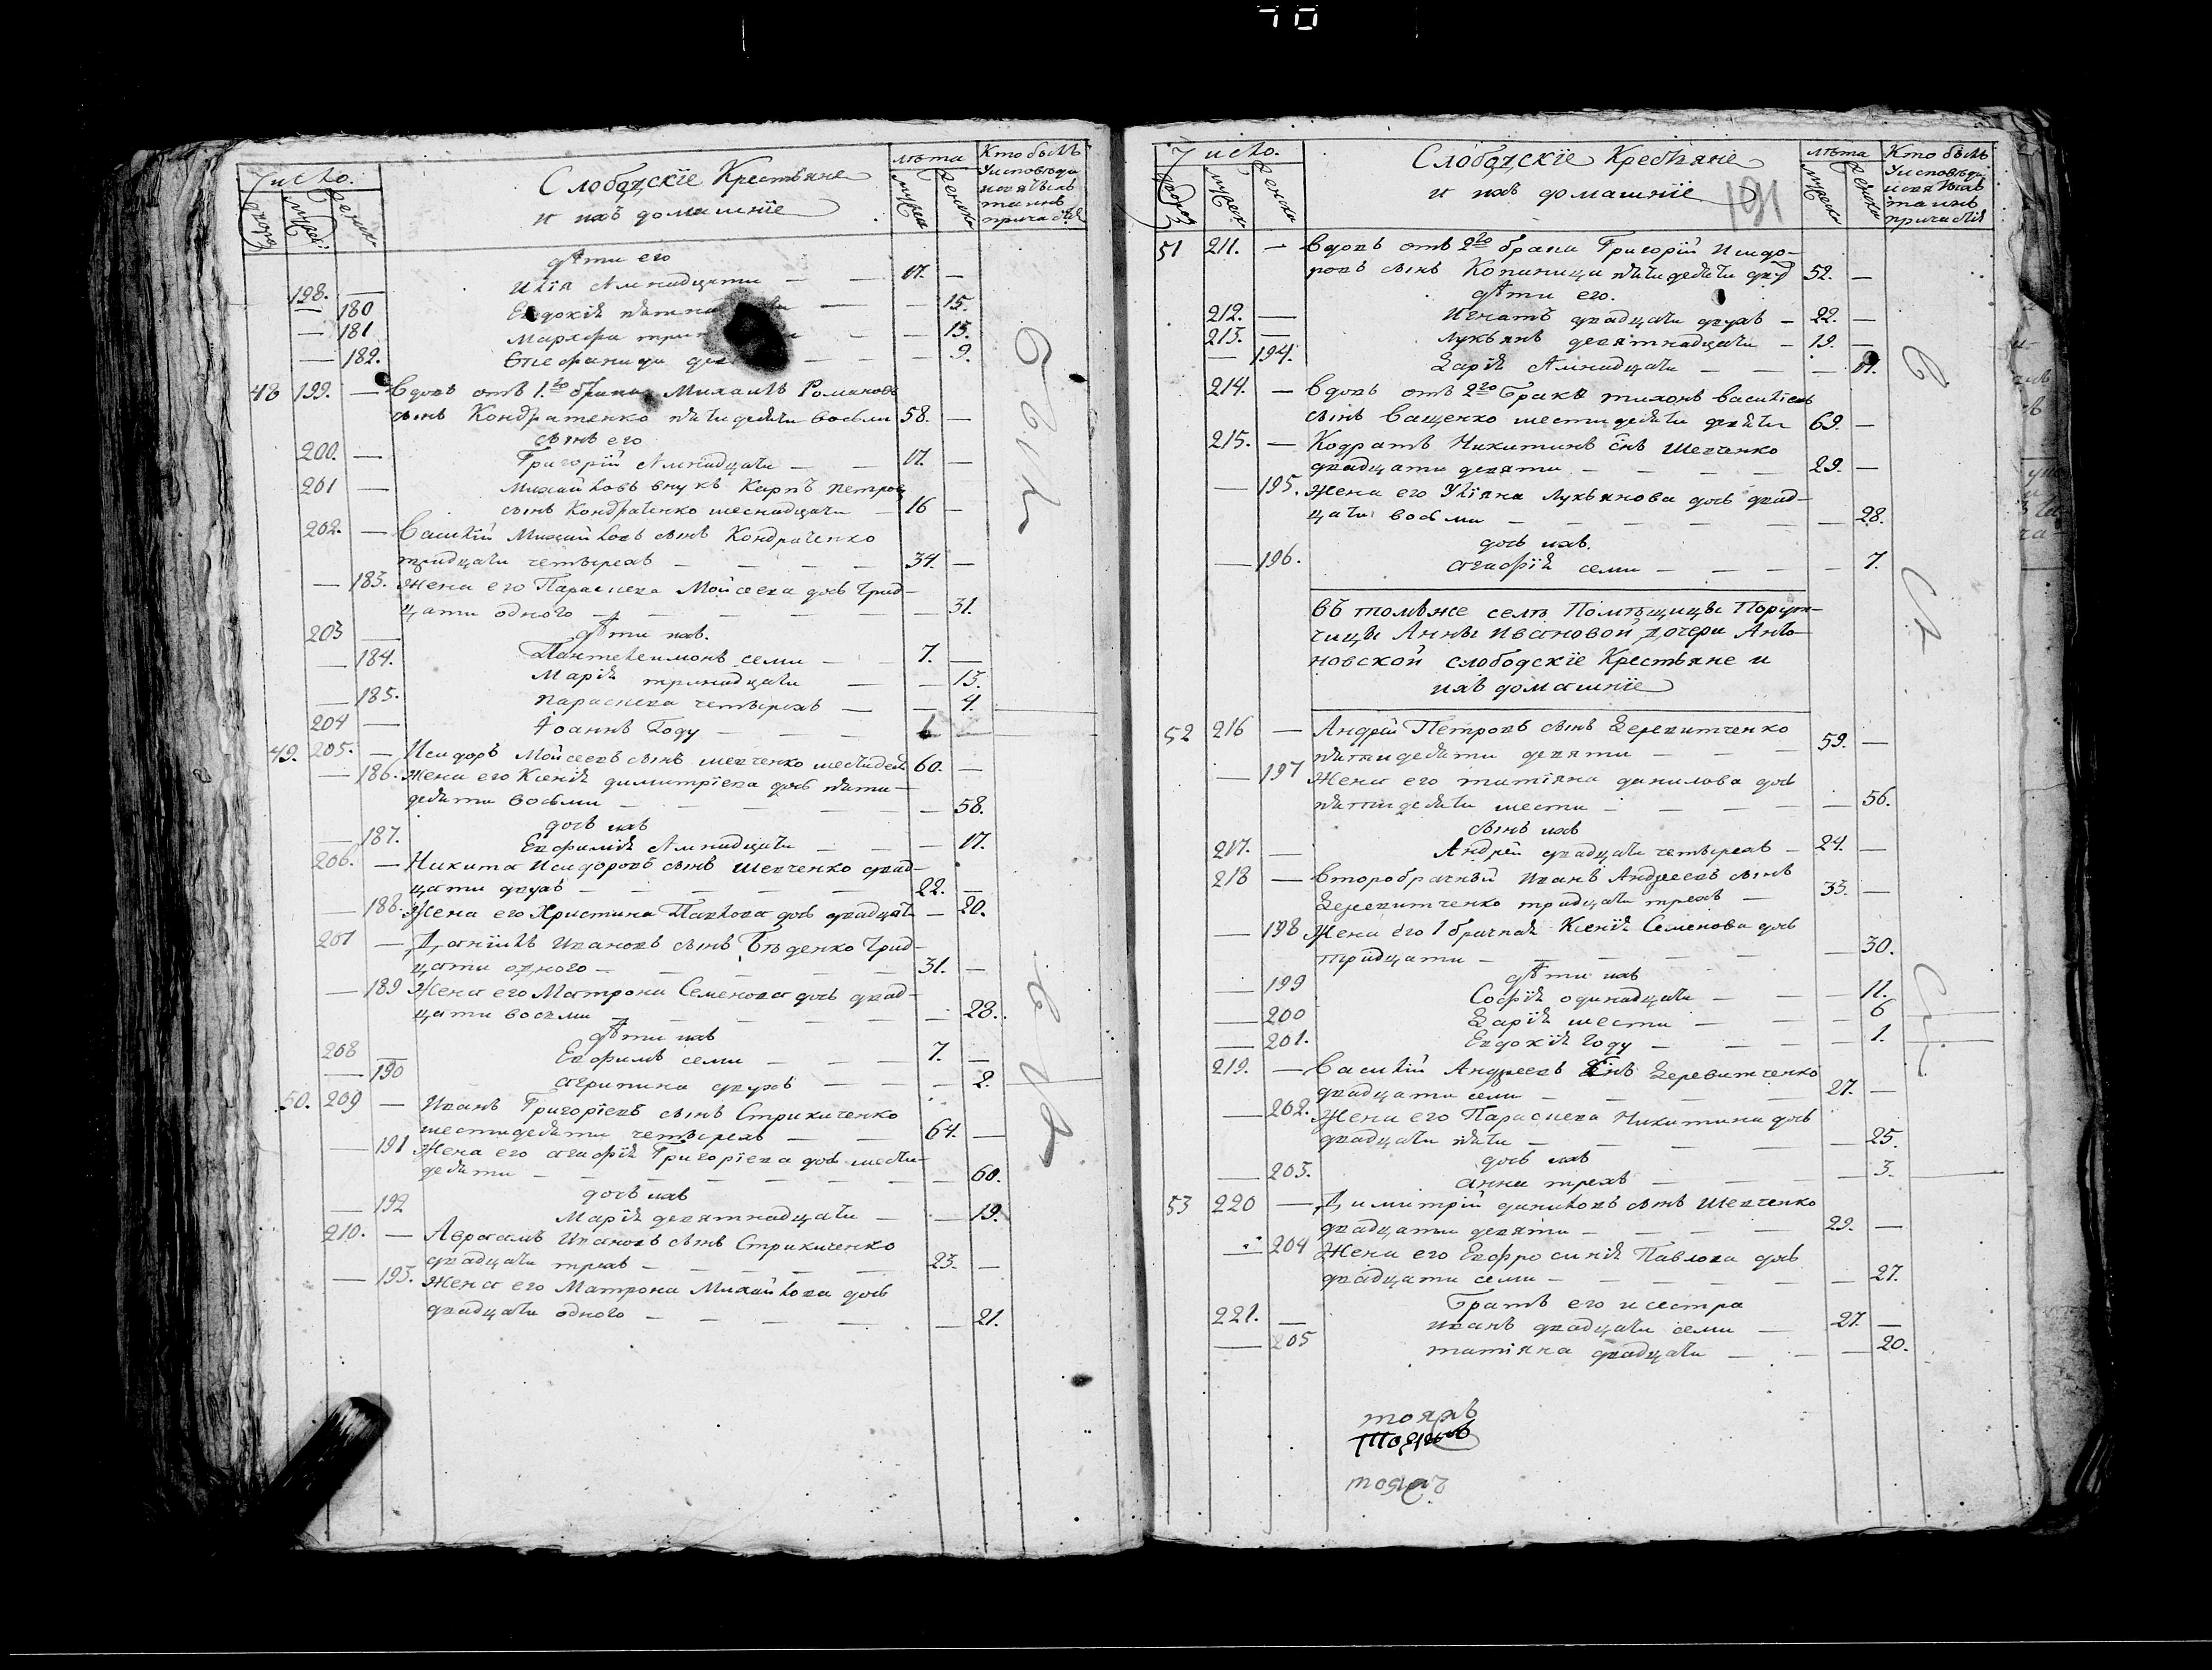 70
Число.
дворовъ
мужеск
женска
Слободскїе Крестьяне
и ихъ домашнїе
лѣта
мужеска
женска
Кто былъ
У исповѣди
и святыхъ
таинъ
причастїя
дѣти его
198. — Илїя семнадцати — — 17. —
— 180 Евдокїя — 15.
— 181 Марѳа — — 13.
— 182. Епефанида — — 9.
48 199. — Вдовъ отъ 1.го брака Михаилъ Романовъ
сынъ Кондратенко пятидесяти восьми 58. —
сынъ его
200. — Григорїй семнадцати — — 17. —
201 — Михайловъ внукъ Карпъ Петровъ
сынъ Кондратенко шеснадцати — 16 —
202. — Василїй Михайловъ сынъ Кондратенко
тридцати четырехъ — — — 34. —
— 183. Жена его Параскева Мойсеева дочь трид-
цати одного — — — — — 31.
дѣти ихъ.
203 — Пантелеимонъ семи — — 7. —
— 184. Марїя тринадцати — — 13.
— 185. Параскева четырехъ — — 4.
204 — Іоаннъ Году — — — 1 —
49. 205. — Исидоръ Мойсеевъ сынъ Шевченко шестидеся 60. —
— 186. Жена его Ксенїя Димитрїева дочь пяти-
десяти восьми — — — — — 58.
дочь ихъ
— 187. Евфимїя семнадцати — — — 17.
206. — Никита Исидоровъ сынъ Шевченко двад-
цати двухъ — — — — 22. —
— 188. Жена его Христина Павлова дочь двадцати — 20.
207 — Данїилъ Ивановъ сынъ Бѣденко трид-
цати одного — — — — 31. —
— 189 Жена его Матрона Семенова дочь двад-
цати восьми — — — — — 28.
дѣти ихъ
208 — Евфимъ семи — — — 7. —
— 190 Агрипина двухъ — — — 2.
50. 209 — Иванъ Григорїевъ сынъ Стрикиченко
шестидесяти четырехъ — — 64. —
— 191 Жена его Агафїя Григорїева дочь шести-
десяти — — — — — — 60.
дочь ихъ
— 192 Марїя девятнадцати — — 19.
210. — Авраамъ Ивановъ сынъ Стрикиченко
двадцати трехъ — — — — 23. —
— 193. Жена его Матрона Михайлова дочь
двадцати одного — — — — — 21.
Число.
дворов
мужеск
женска
Слободскїе Крестьяне
и ихъ домашнїе
191
лѣта
мужеска
женска
Кто былъ
У исповѣди
и святыхъ
таинъ
причастїя
51 211. — Вдовъ отъ 2го брака Григорїй Исидо-
ровъ сынъ Копиница пятидесяти двух 52. —
дѣти его.
212. — Игнатъ двадцати двухъ — 22. —
213. — Лукьянъ девятнадцати — 19. —
— 194. Дарїя семнадцати — — — 17.
214. — Вдовъ отъ 2го Брака Тихонъ Василїевъ
сынъ Ващенко шестидесяти девяти 69. —
215. — Кодратъ Никитинъ снъ Шевченко
двадцати девяти — — — — 29. —
— 195. Жена его Улїяна Лукьянова дочь двад-
цати восьми — — — — — 28.
дочь ихъ.
— 196. Агафїя семи — — — — 7.
Въ томъже селѣ Помѣщицы Поруч-
чицы Анны Ивановой дочери Анто-
новской слободскїе Крестьяне и
ихъ домашнїе
52 216 — Андрїй Петровъ сынъ Деревитченко
пятидесяти девяти — — — 59. —
— 197 Жена его Татїана Данилова дочь
пятидесяти шести — — — — 56.
сынъ ихъ
217. — Андрей двадцати четырехъ — 24. —
218 — Второбрачный Иванъ Андреевъ сынъ
Деревитченко тридцати трехъ — 33. —
— 198 Жена его 1 брачная Ксенїя Семенова дочь
тридцати — — — — — 30.
дѣти ихъ
— 199 Софїя одинадцати — — — 11.
— 200 Дарїя шести — — — 6
— 201. Евдокїя Году — — — 1.
219. — Василїй Андреевъ снъ Деревитченко
двадцати семи — — — — 27. —
— 202. Жена его Параскева Никитина дочь
двадцати пяти — — — — 25.
дочь ихъ
— 203. Анна трехъ — — — 3.
53 220 — Димитрїй Даниловъ сынъ Шевченко
двадцати девяти — — — — 29. —
— 204 Жена его Евфросинїя Павлова дочь
двадцати семи — — — — — 27.
Братъ его и сестра
221. — Иванъ двадцати семи — 27. —
— 205 Татїана двадцати — — — 20.